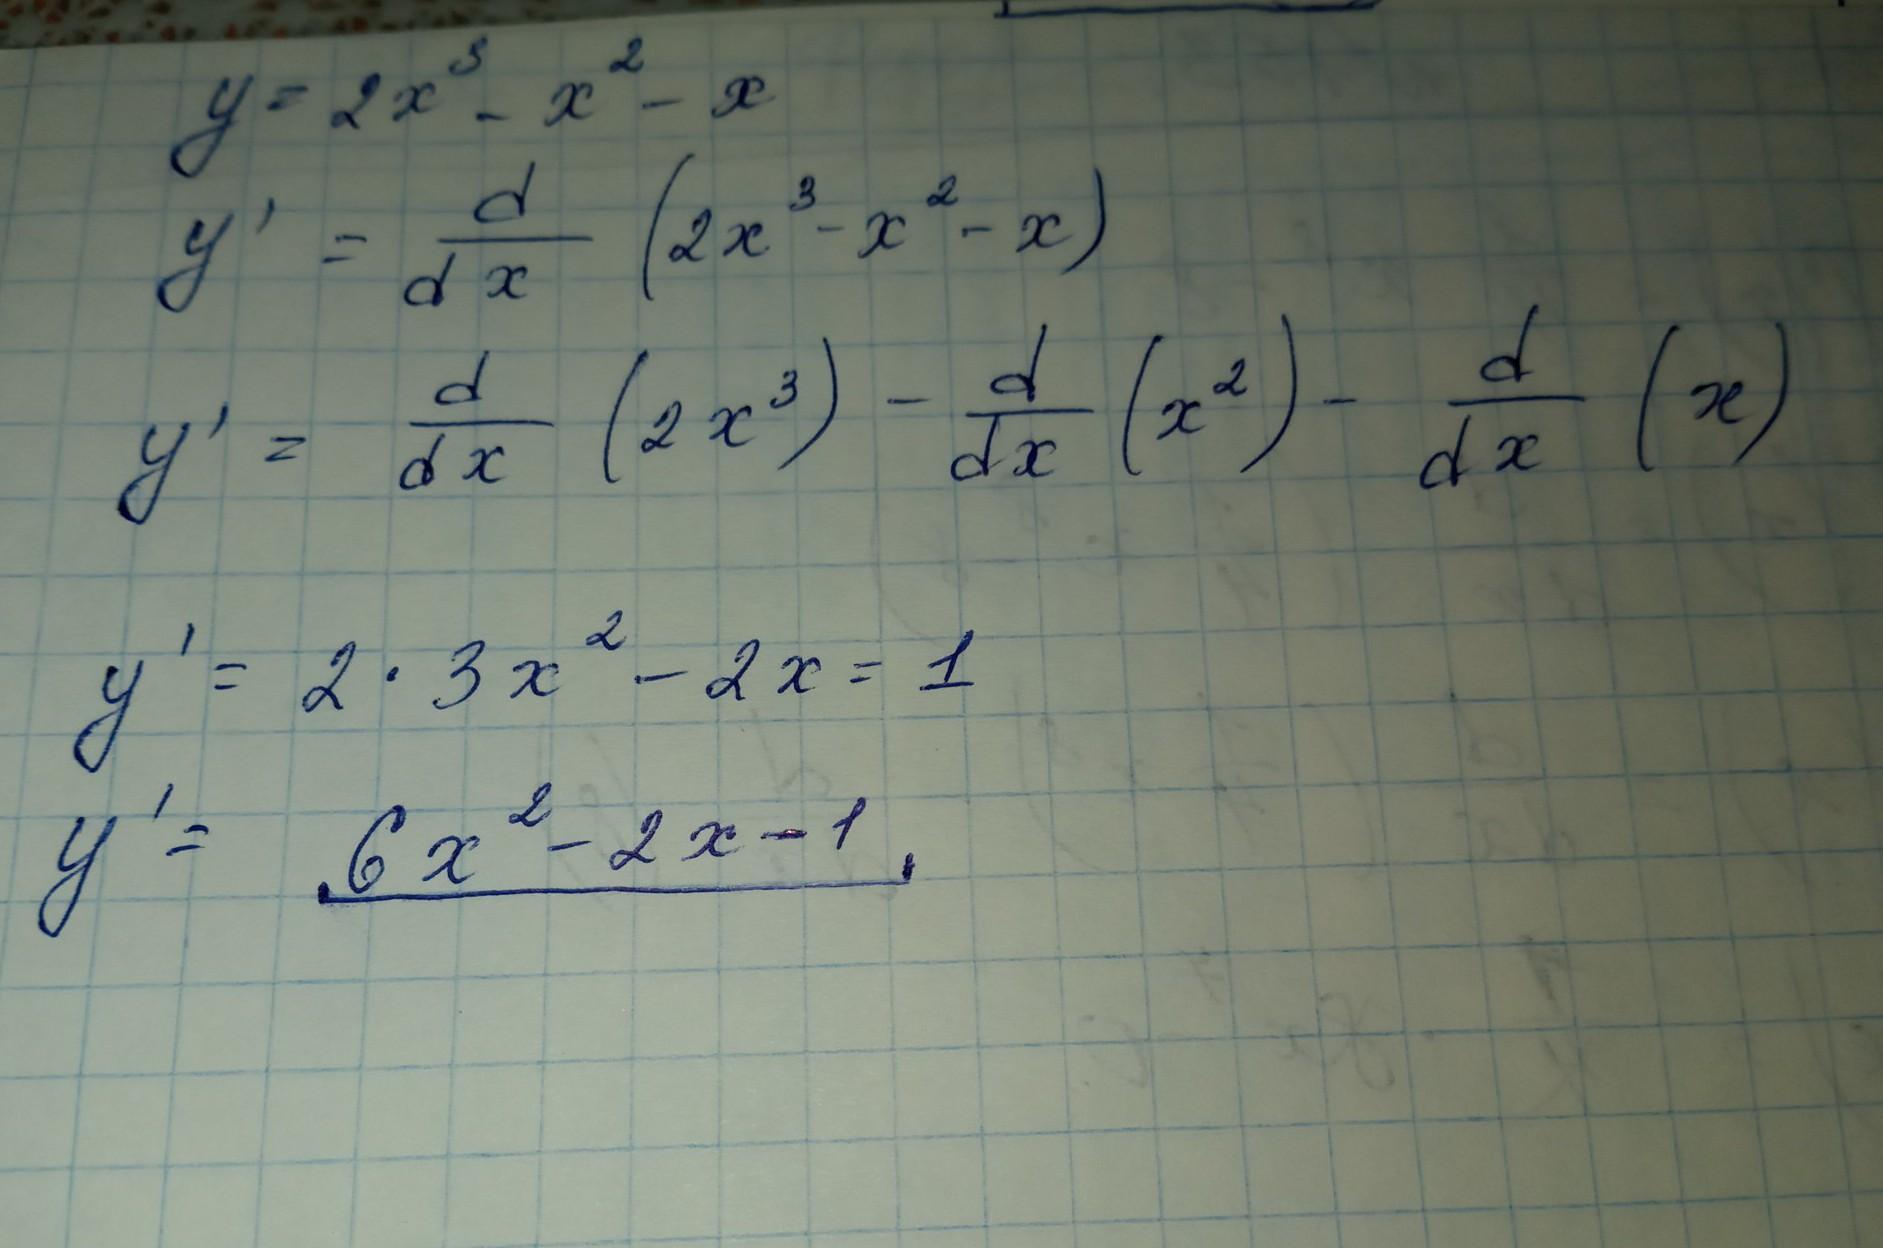 y = 2x³ - x² - x
y' = d/dx (2x³ - x² - x)
y' = d/dx (2x³) - d/dx (x²) - d/dx (x)
y' = 2 · 3x² - 2x = 1
y' = 6x² - 2x - 1